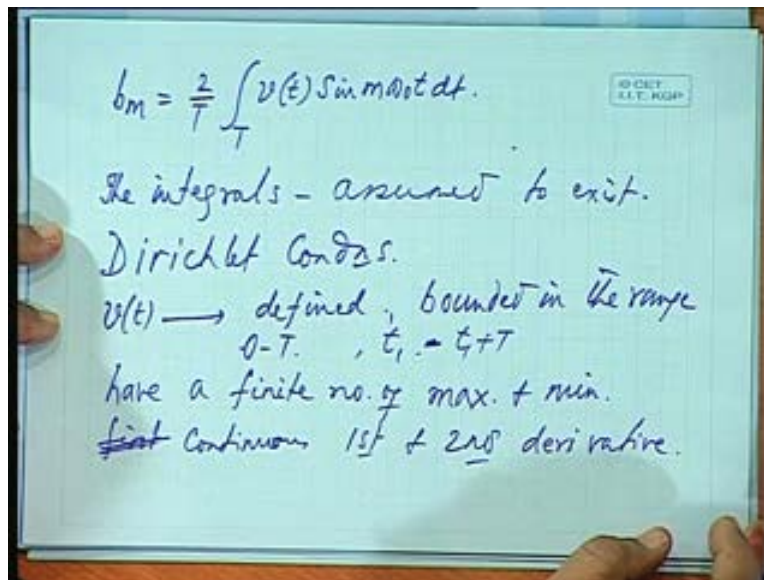 bm = 2/T ∫T v(t) Sin mω₀t dt.
© CET
I.I.T. KGP
The integrals - assumed to exit.
Dirichlet Condns.
v(t) ⟶ defined, bounded in the range
0-T. , t₁ - t₁+T
have a finite no. of max. & min.
first Continuous 1st & 2nd derivative.